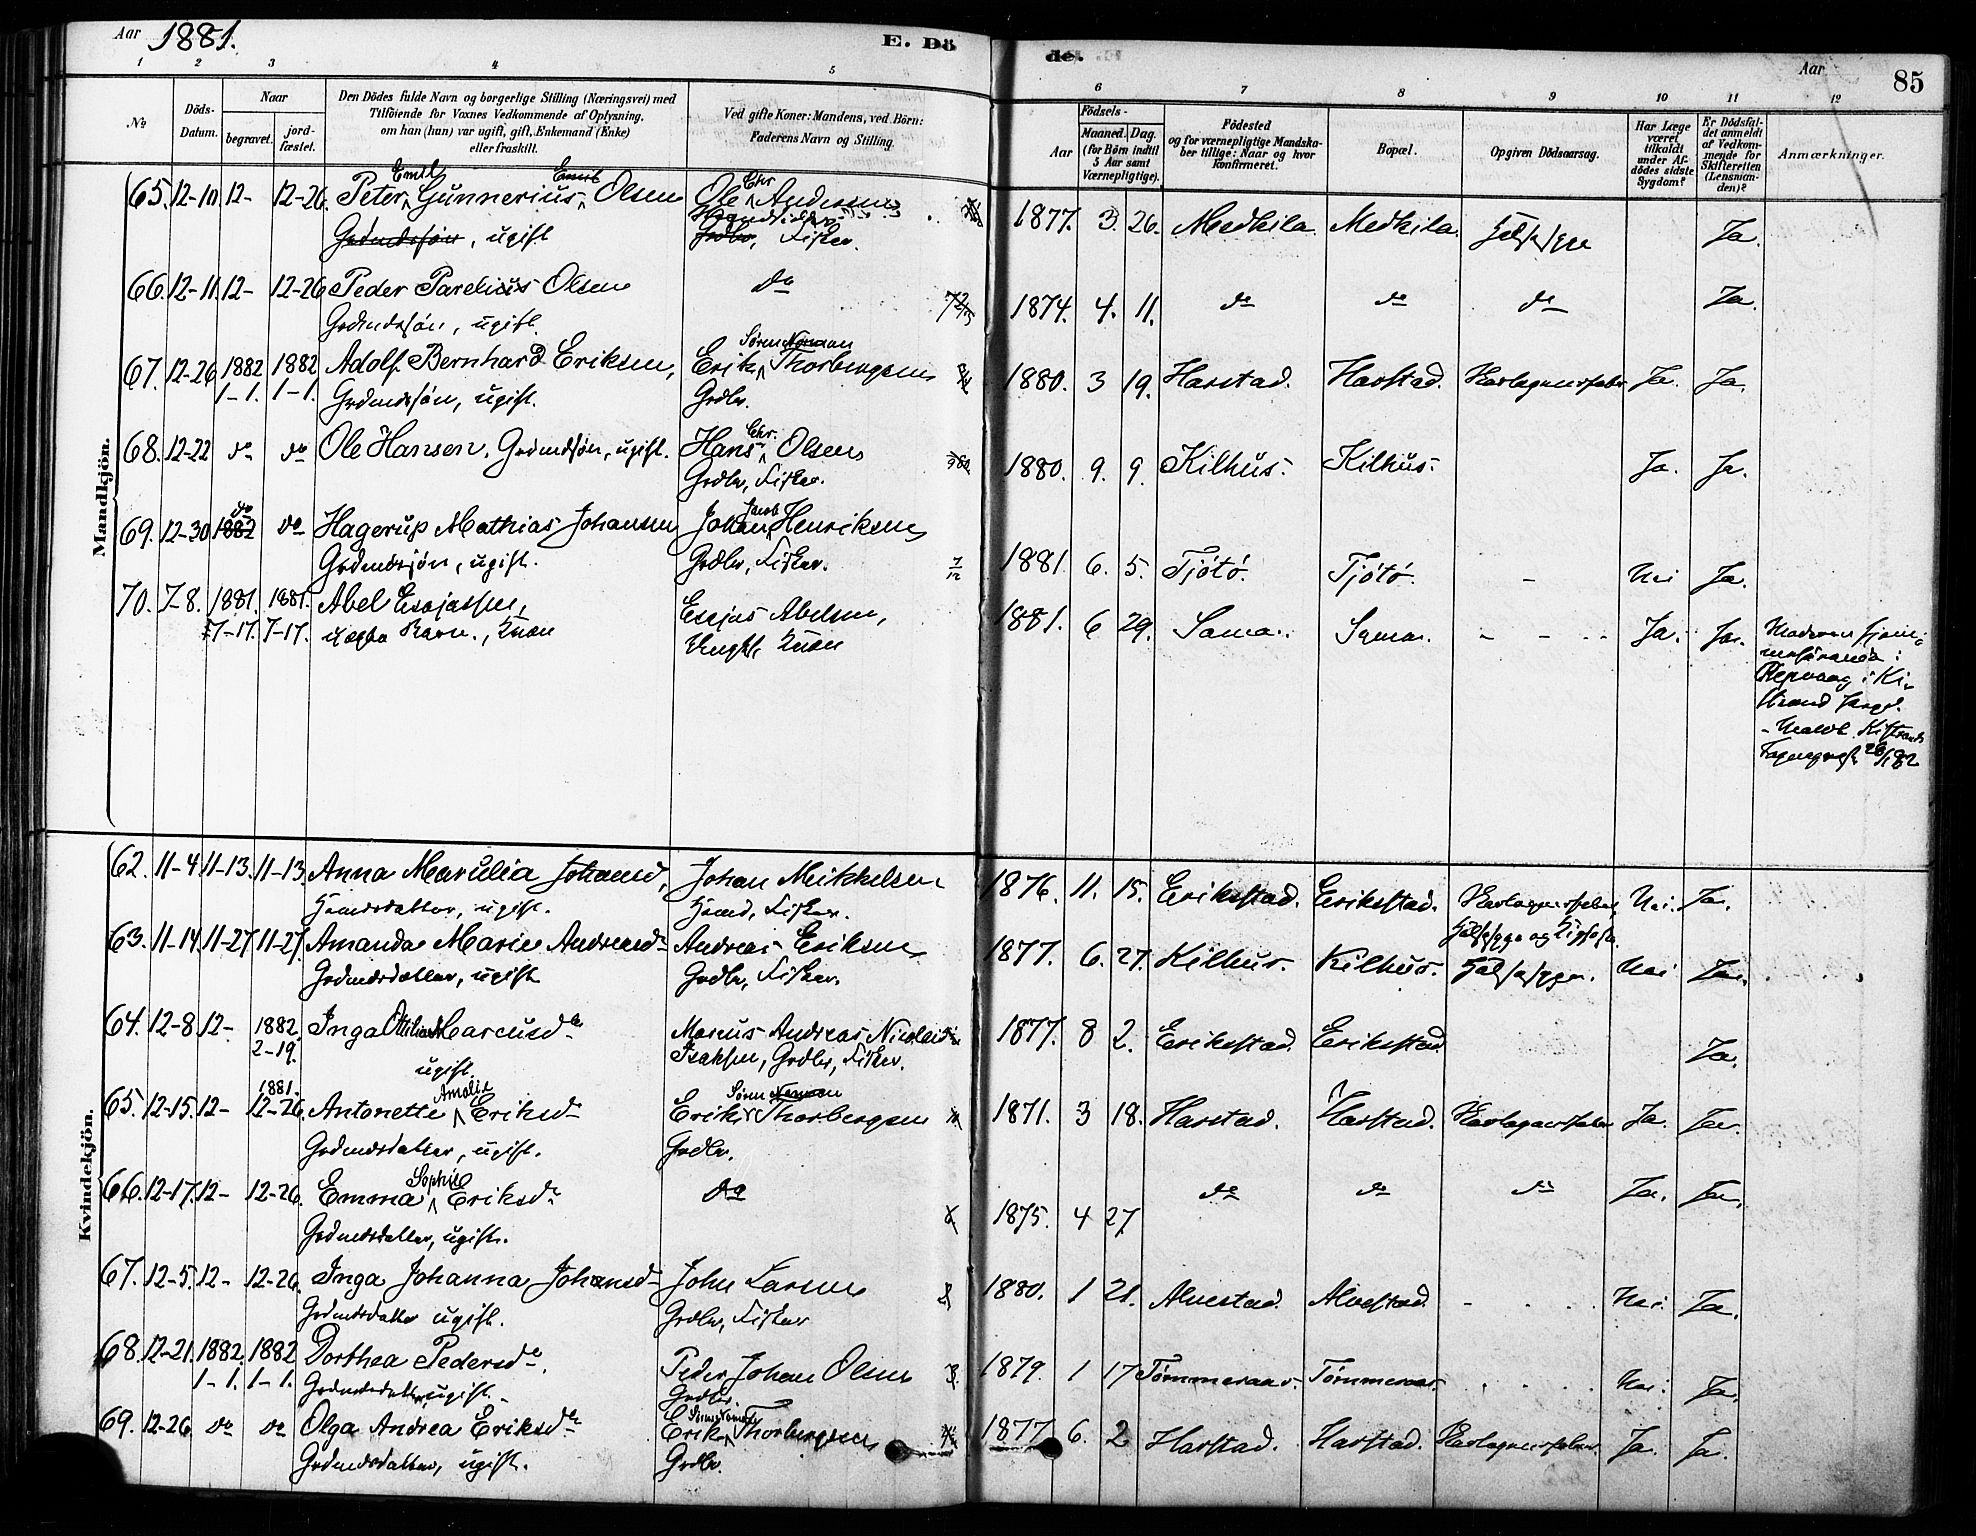 Aar 1881.
E. Dö
de.
Aar
85
1 2 3 4 5 6 7 8 9 10 11 12
No
Döds-Datum.
Naar
begravet.
jord-fæstet.
Den Dödes fulde Navn og borgerlige Stilling (Næringsvei) med
Tilföiende for Voxnes Vedkommende af Oplysning,
om han (hun) var ugift, gift, Enkemand (Enke)
eller fraskilt.
Ved gifte Koner: Mandens, ved Börn:
Faderens Navn og Stilling.
Födsels-
Aar
Maaned. Dag.
(for Börn indtil
5 Aar samt
Værnepligtige).
Födested
og for værnepligtige Mandska-
ber tillige: Naar og hvor
konfirmeret.
Bopæl.
Opgiven Dödsaarsag.
Har Læge
været
tilkaldt
under Af-
dödes sidste
Sygdom?
Er Dödsfal-
det anmeldt
af Vedkom-
mende for
Skifteretten
(Lensman-
den)?
Anmærkninger.
Mandkjön.
65. 12-10 12- 12-26. Peter Emil Gunnerius Olsen Ole Chr Andersen 1877. 3. 26. Medkila Medkila. Halssyge Ja.
Grdmdssøn, ugift Grdbr, Fisker.
66. 12-11. 12- 12-26 Peder Parelius Olsen do 1874. 4. 11. do do do Ja.
Grdmdssøn, ugift.
67. 12-26 1882 1-1. 1882 1-1. Adolf Bernhard Eriksen, Erik Søren Thorbergsen 1880. 3 19. Harstad. Harstad. Skarlagensfeber Ja. Ja.
Grdmdssøn, ugift. Grdbr.
68. 12-22 do do Ole Hansen. Grdmdssøn, ugift. Hans Chr. Olsen 1880. 9. 9. Kilhus. Kilhus. Ja. Ja.
Grdbr, Fisker.
69. 12-30 do do Hagerup Mathias Johansen Johan Jacob Henriksen 7/12 1881. 6. 5. Tjötö. Tjötö. - Nei Ja.
Grdmdssøn, ugift. Grdbr, Fisker.
70. 7-8. 1881. 7-17. 1881. 7-17. Abel Esajassen, Esajas Abelsen, 1881. 6 29. Sama. Sama. - - Ja. Ja.
uægte Barn., Kvæn Ungkl, Kvæn
Moderen hjem-
Repvaag i Ki-
strand
Kistrands
28/1 82
Kvindekjön.
62. 11-4. 11-13. 11-13. Anna Marulia Johansd, Johan Mikkelsen 1876. 11. 15. Erikstad. Erikstad. Skarlagensfeber, Nei. Ja.
Husmdsdatter, ugift. Husmd, Fisker. Halssyge og
63. 11-14. 11-27 11-27. Amanda Marie Andreasdr Andreas Eriksen 1877. 6. 27. Kilhus. Kilhus. Halssyge. Nei Ja.
Grdmdsdatter, ugift Grdbr, Fisker.
64. 12-8 12- 1882. 2-19. Inga Ottilia Marcusdr Marcus Andreas Nicolai 1877. 8 2. Erikstad. Erikstad Ja.
ugift. Isaksen, Grdbr, Fisker.
65. 12-15. 12- 1881. 12-26. Antonette Amalie Eriksdr Erik Søren Thorbergsen 1871. 3 18. Harstad. Harstad. Skarlagensfeber Ja. Ja.
Grdmdsdatter, ugift. Grdbr.
66. 12-17. 12- 12-26. Emma Sophie Eriksdr do 1875. 4 27. do do do Ja. Ja.
Grdmdsdatter, ugift.
67. 12-5. 12- 12-26. Inga Johanna Johansdr John Larsen 1880. 1 21. Alvestad. Alvestad. - Nei. Ja.
Grdmdsdatter ugift. Grdbr, Fisker
68. 12-21. 1882. 1-1. 1882 1-1. Dorthea Pedersdr. Peder Johan Olsen 1879. 1 17 Tömmeraas. Tömmeraas. Nei. Ja.
Grdmdsdatter, ugift. Grdbr.
69. 12-26 do do Olga Andrea Eriksdr Erik Thorbergsen 1877 6. 2 Harstad. Harstad. Skarlagensfeber. Ja. Ja.
Grdmdsdatter, ugift. Grdbr.